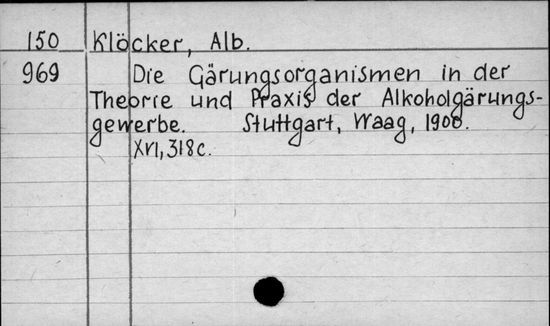 150 Klöcker, Alb.
969 Die Gärungsorganismen in der
Theorie und Praxis der Alkoholgärungs-
gewerbe. Stuttgart, Waag, 1900.
XVI, 318 c.